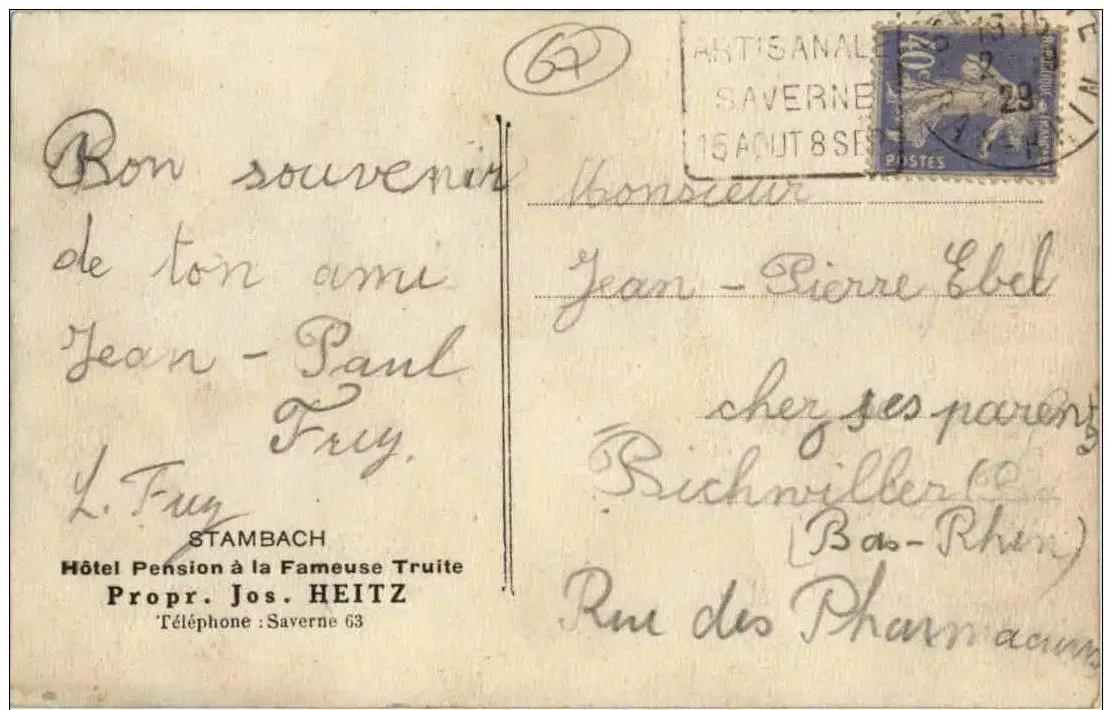 67
ARTISANALE
SAVERNE
15 AOUT 8 SEP
40c
POSTES
29
Bon souvenir
de ton ami
Jean - Paul
Frey.
L. Frey
STAMBACH
Hôtel Pension à la Fameuse Truite
Propr. Jos. HEITZ
Téléphone : Saverne 63
Monsieur
Jean - Pierre Ebel
chez ses parents
Bischwiller
(Bas-Rhin)
Rue des